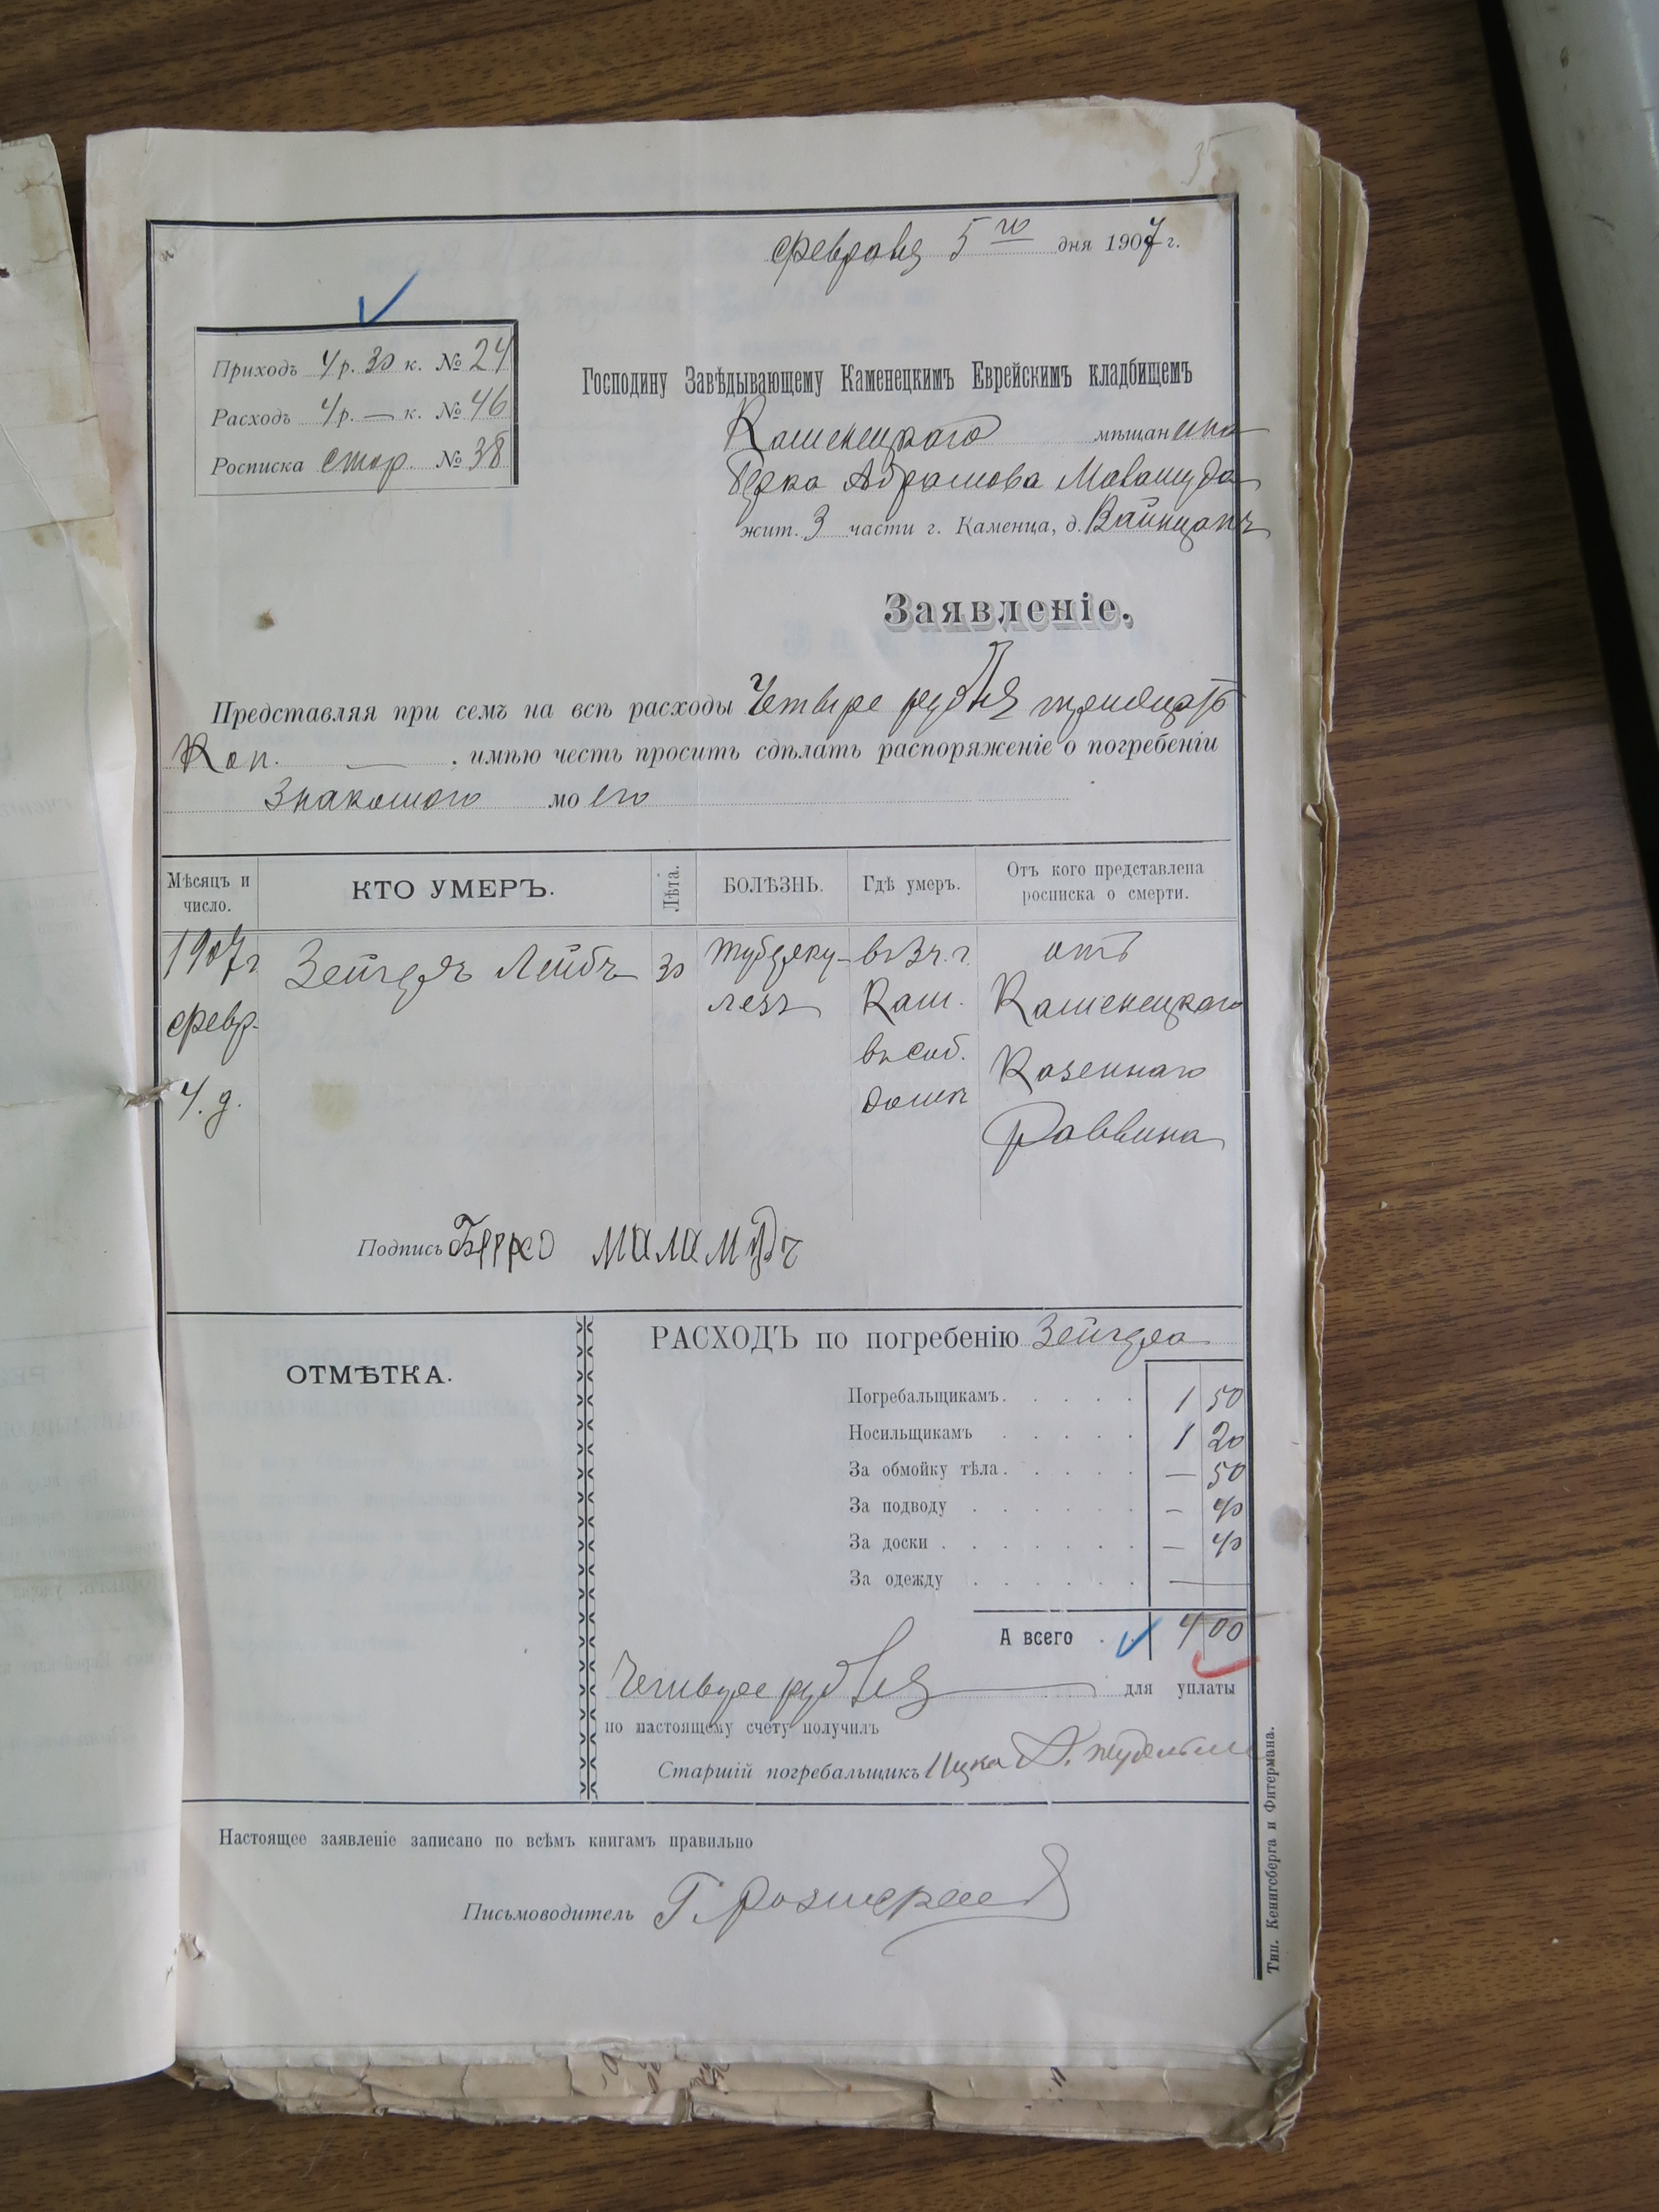 5
февраля 5 го дня 1907 г.
Приходъ 4 р. 30 к. № 24
Расходъ 4 р. — к. № 46
Росписка стор. № 38
Господину Завѣдывающему Каменецкимъ Еврейскимъ кладбищемъ
Каменецкаго мѣщанина
Берка Абрамова Маламуда
жит. 3 части г. Каменца, д.
Заявленіе.
Представляя при семъ на всѣ расходы Четыре рубля тридцать
Коп. — , имѣю честь просить сдѣлать распоряженіе о погребеніи
Знакомого моего
Мѣсяцъ и число.
КТО УМЕРЪ.
Лѣта.
БОЛѢЗНЬ.
Гдѣ умеръ.
Отъ кого представлена росписка о смерти.
1907 г
февр.
4. д.
Зейгеръ Лейбъ
30
туберку-
лезъ
въ 3 ч. г.
Кам.
въ соб.
домѣ
отъ
Каменецкаго
Казеннаго
Раввина
Подпись Берко Маламудъ
ОТМѢТКА.
РАСХОДЪ по погребенію Зейгера
Погребальщикамъ. 1 50
Носильщикамъ 1 20
За обмойку тѣла. — 50
За подводу — 40
За доски — 40
За одежду —
А всего 4 00
Четыре рубля — для уплаты
по настоящему счету получилъ
Старшій погребальщикъ Ицка
Настоящее заявленіе записано по всѣмъ книгамъ правильно
Письмоводитель Г.
Тип. Кенигсберга и Фитермана.